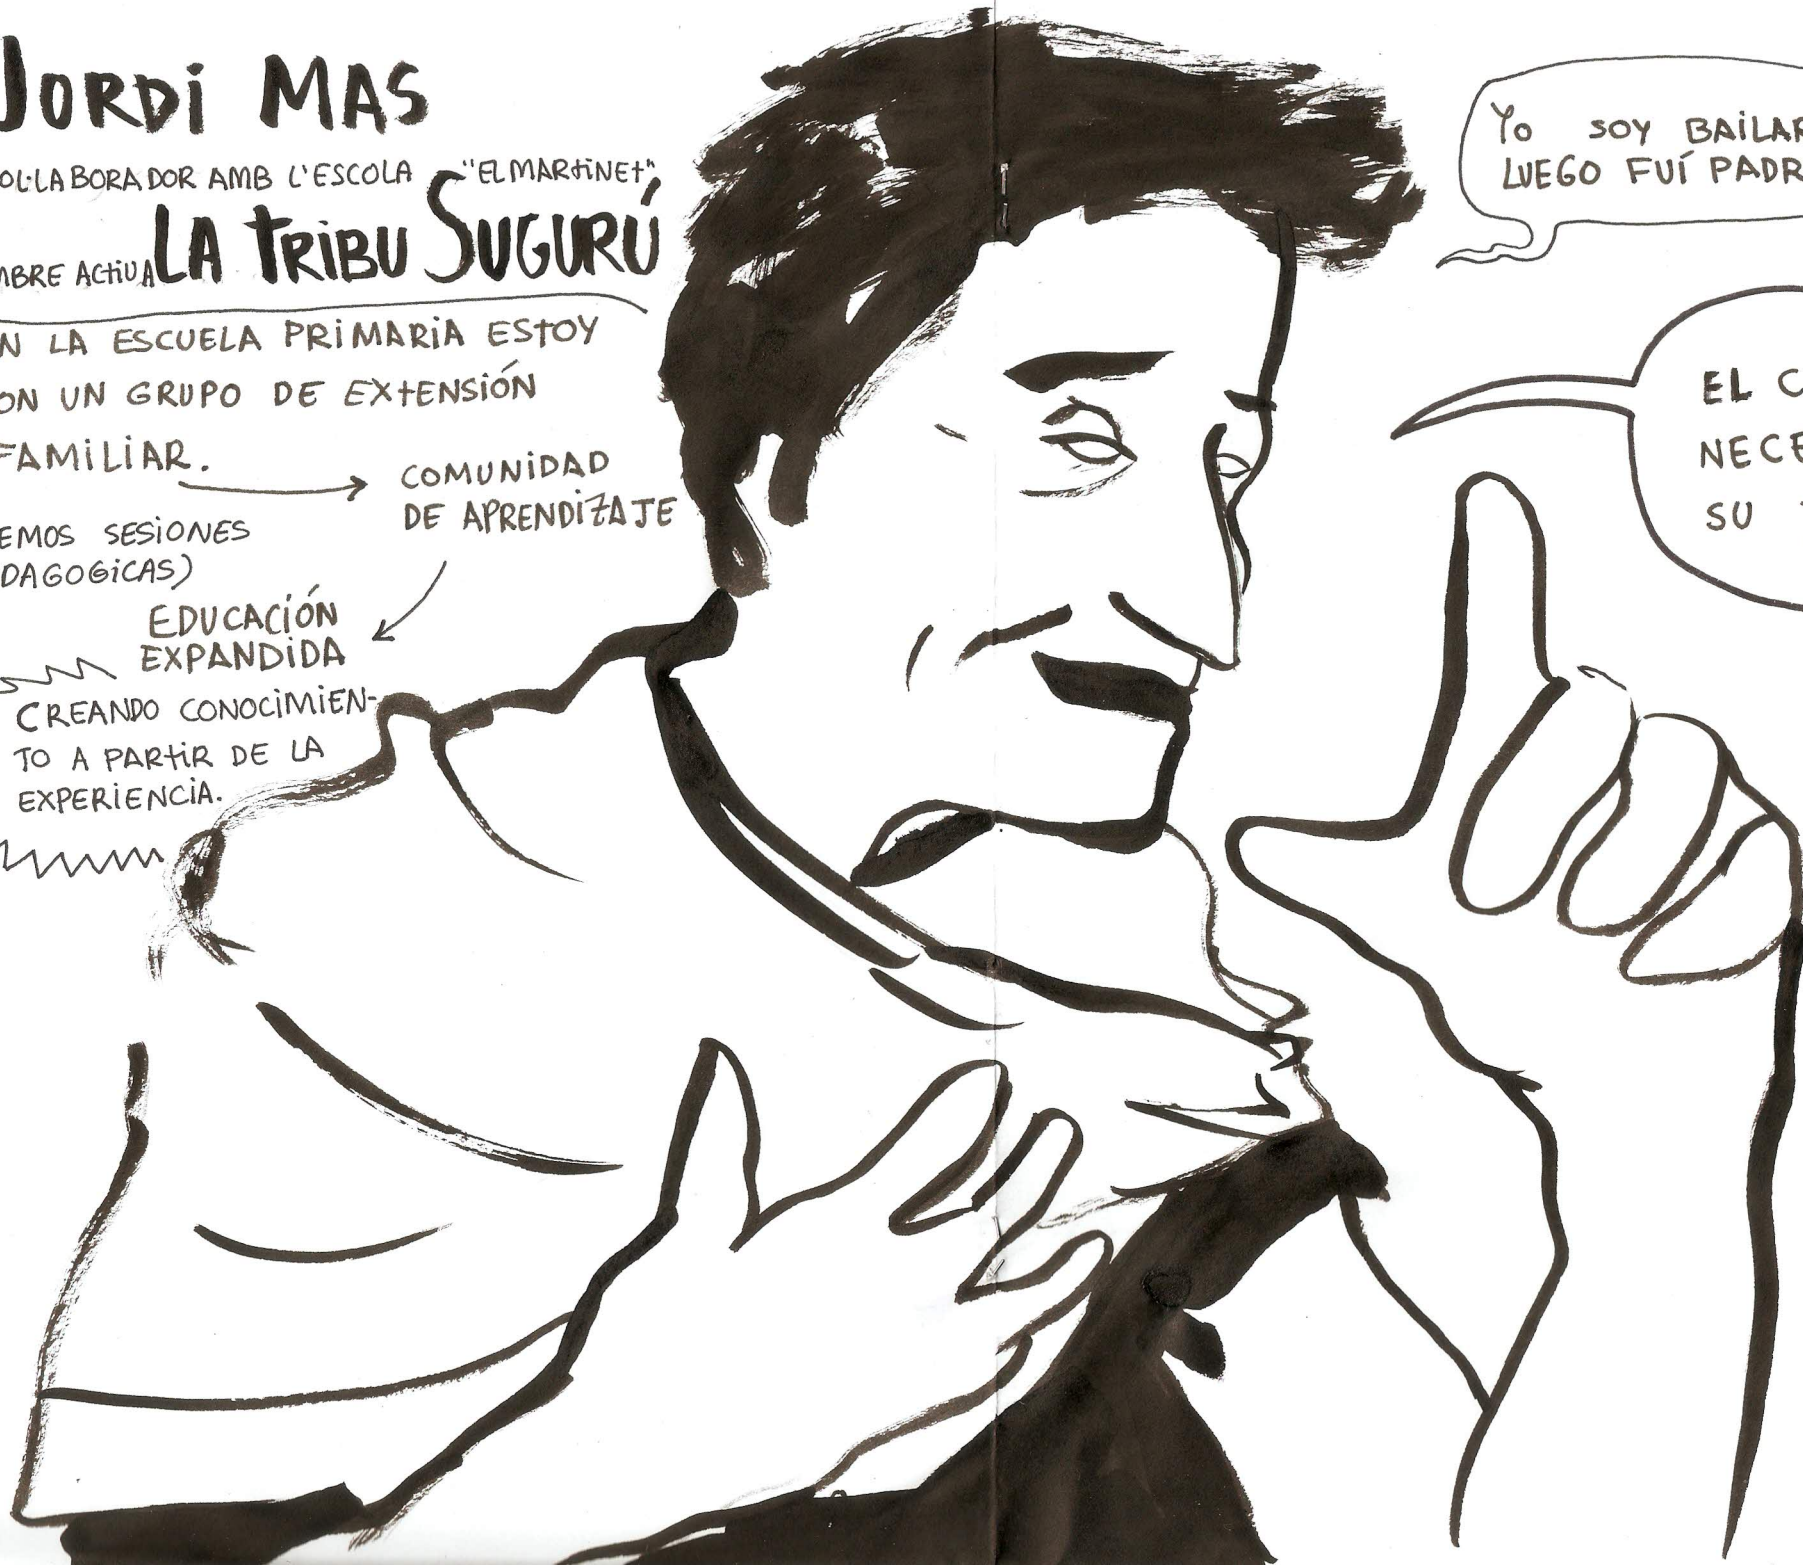 JORDi MAS
OL·LABORADOR AMB L'ESCOLA "EL MARtiNEt"
MBRE ACtiU A LA tRiBU SUGURÚ
N LA ESCUELA PRiMARiA EStOY
ON UN GRUPO DE EXtENSiÓN
FAMiLiAR.
COMUNiDAD
DE APRENDiZAJE
EMOS SESiONES
DAGOGiCAS)
EDUCACiÓN
EXPANDiDA
CREANDO CONOCiMiEN-
TO A PARtiR DE LA
EXPERiENCiA.
Yo SOY BAiLAR
LUEGO FUÍ PADR
EL C
NECE
SU